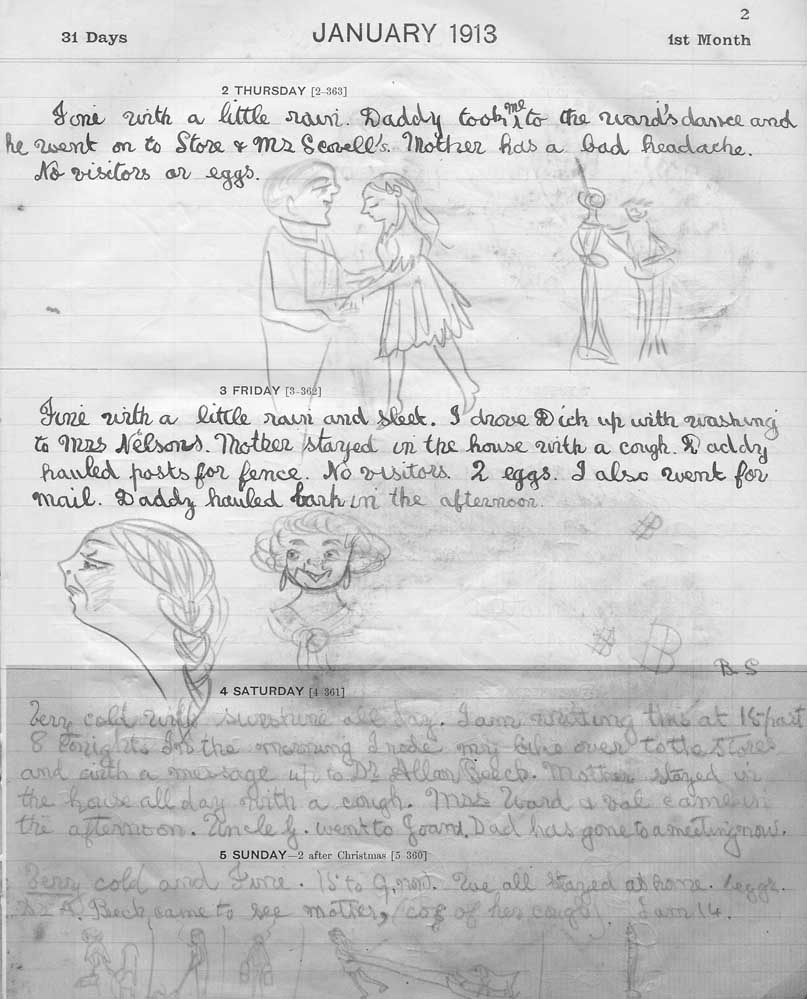 2
31 Days
JANUARY 1913
1st Month
2 THURSDAY [2-363]
Fine with a little rain. Daddy took me to the ward's dance and
he went on to Store & Mr Scovell's. Mother has a bad headache.
No visitors or eggs.
3 FRIDAY [3-362]
Fine with a little rain and sleet. I drove Dick up with washing
to Mrs Nelsons. Mother stayed in the house with a cough. Daddy
hauled posts for fence. No visitors. 2 eggs. I also went for
mail. Daddy hauled bark in the afternoon.
B
B S
4 SATURDAY [4 361]
Very cold with sunshine all day. I am writing this at 15 past
8 tonight. In the morning I rode my bike over to the Store
and with a message up to Dr Allan Beech. Mother stayed in
the house all day with a cough. Mrs Ward & Val came in
the afternoon. Uncle G. went to Joans. Dad has gone to a meeting now.
5 SUNDAY—2 after Christmas [5 360]
Very cold and Fine. 15 to 9, now. We all stayed at home. eggs.
Dr A. Beck came to see mother, (cos of her cough) I am 14.